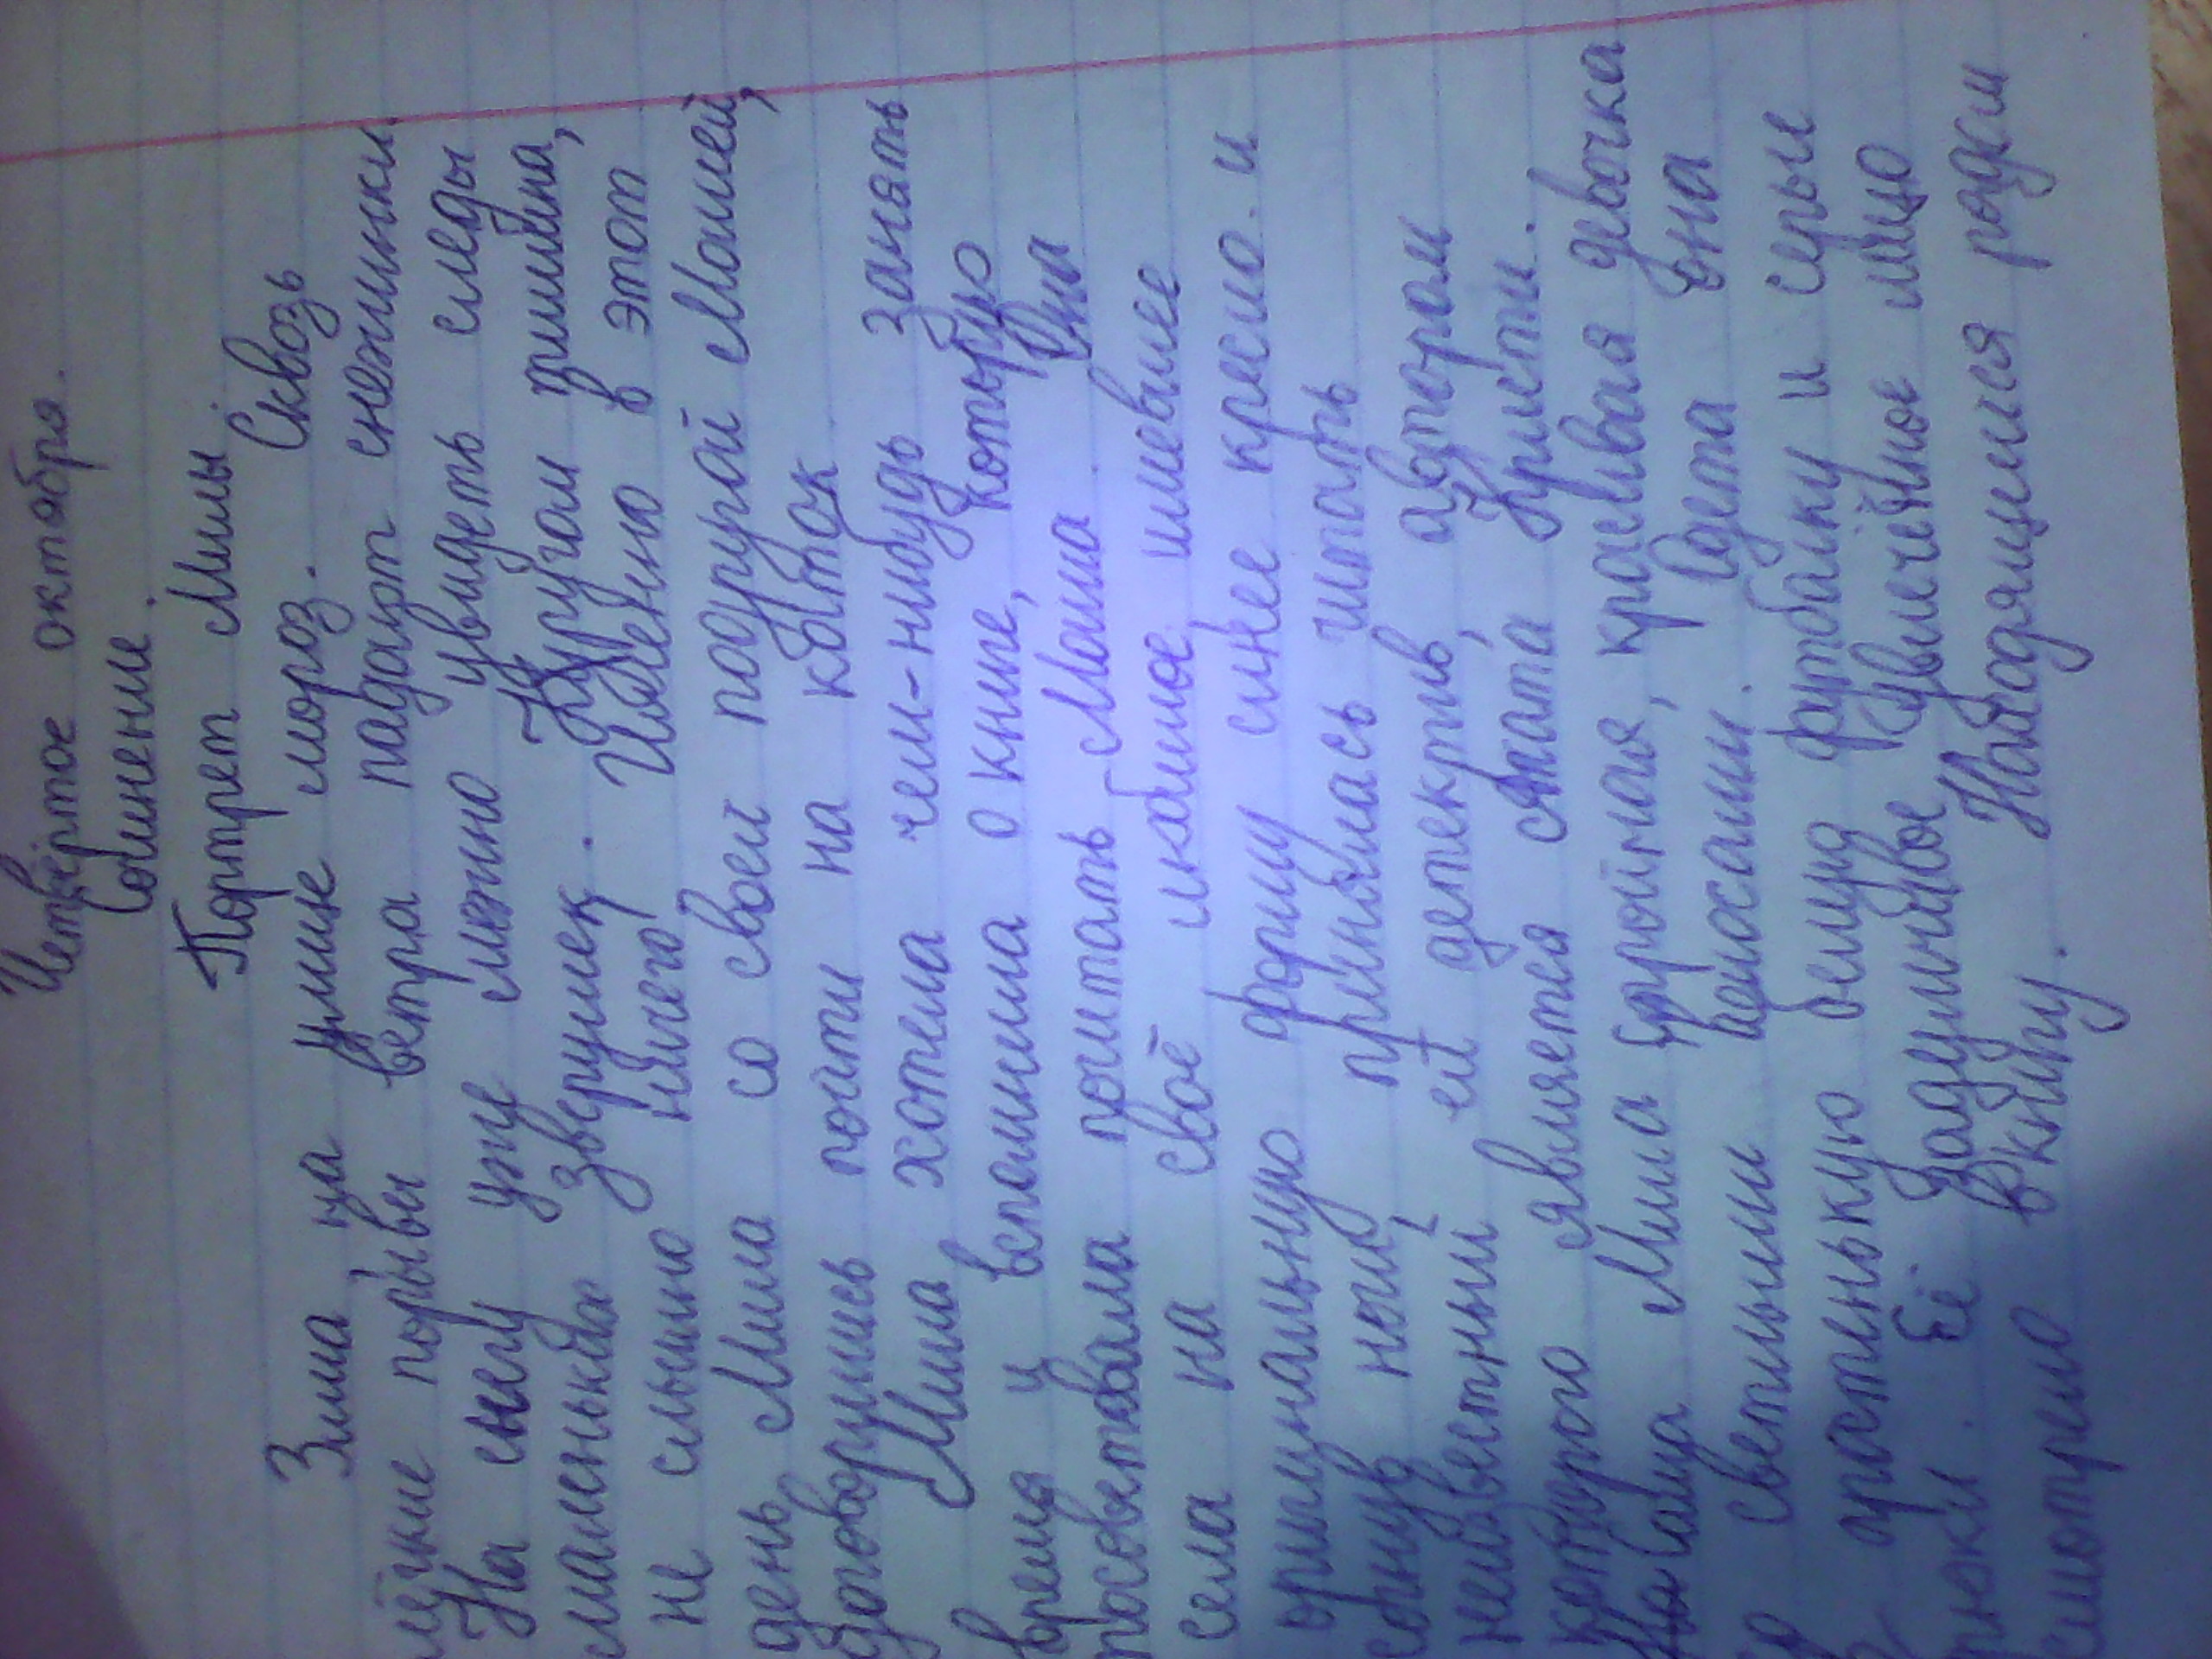 Четвёртое октября.
Сочинение.
Портрет Милы.
Зима на улице мороз. Сквозь
лёгкие порывы ветра падают снежинки.
На снегу уже можно увидеть следы
маленьких зверушек. Кругом тишина,
не слышно ничего. Именно в этот
день Мила со своей подругой Машей,
договорились пойти на каток
Мила хотела чем-нибудь занять
время и вспомнила о книге, которую
посоветовала почитать Маша. Она
села на своё любимое имевшее
оригинальную форму синее кресло. и
согнув ноги, принялась читать
неизвестный ей детектив, автором
которого является Агата Кристи.
Сама Мила стройная, красивая девочка
со светлыми волосами. Одета она
в простенькую белую футболку и серые
брюки. Её задумчивое увлечённое лицо
смотрело в книгу. Находящийся рядом